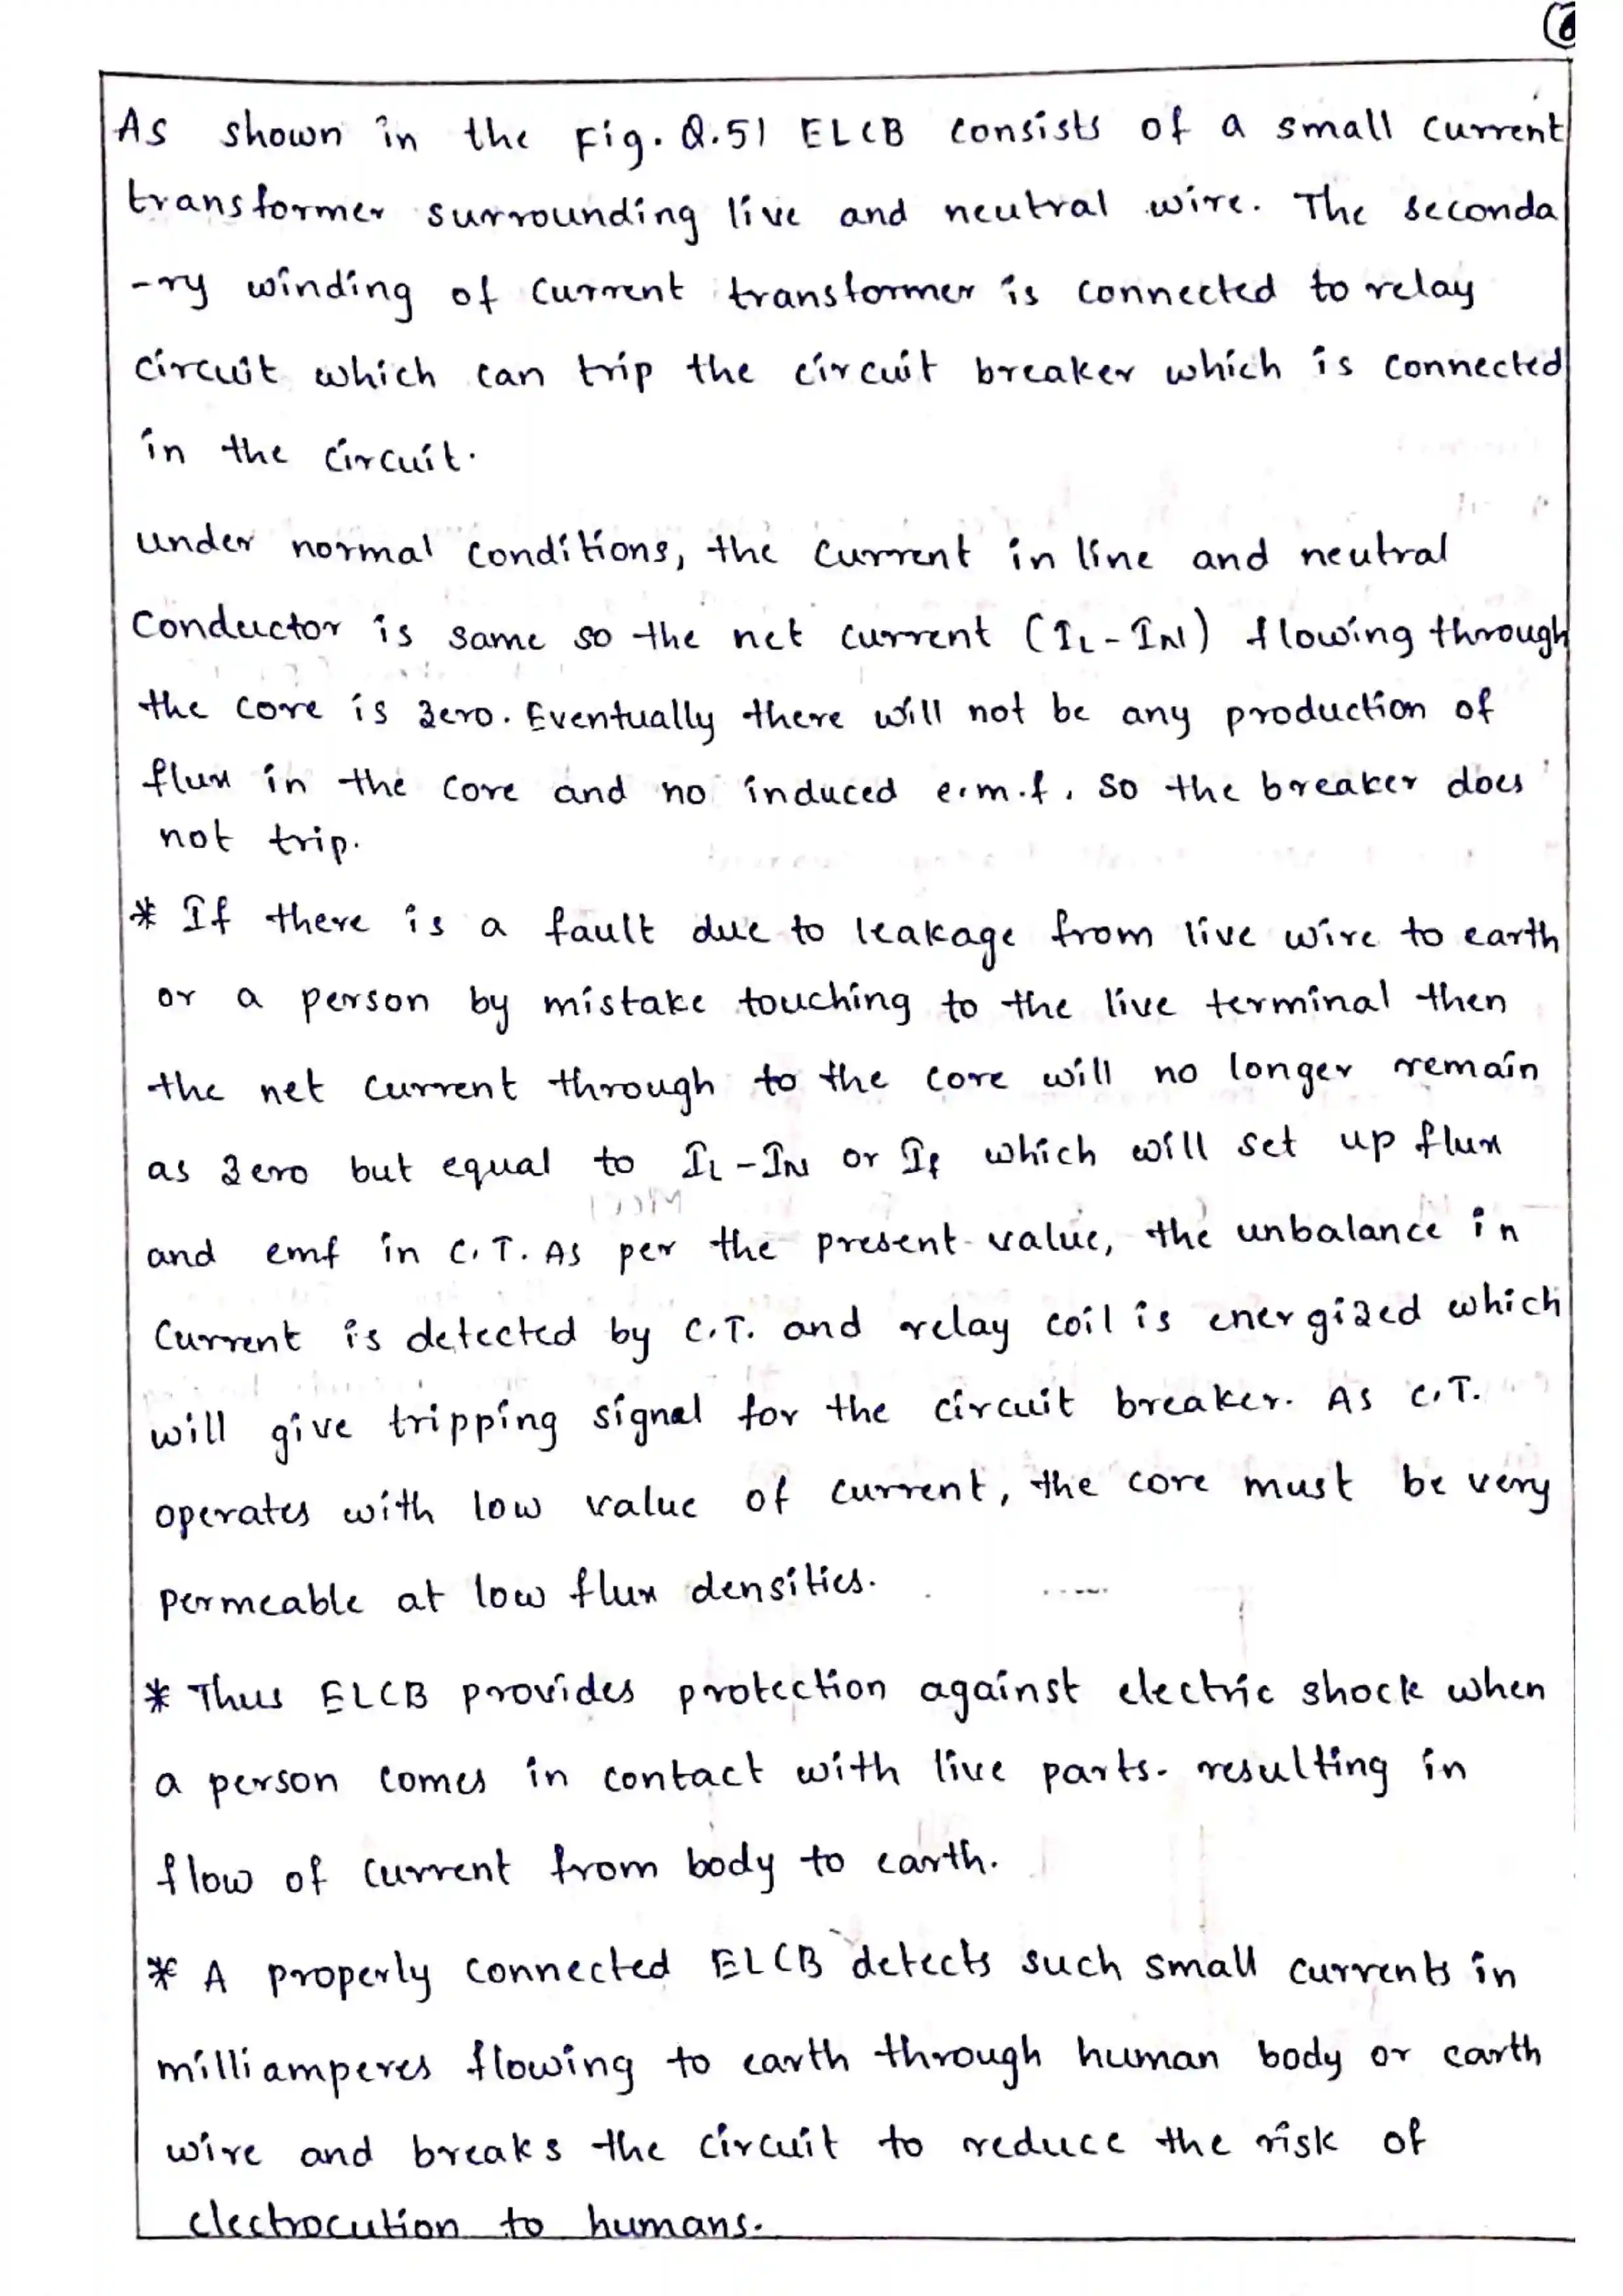 As shown in the Fig. Q.51 ELCB consists of a small current
transformer surrounding live and neutral wire. The seconda
-ry winding of current transformer is connected to relay
circuit which can trip the circuit breaker which is connected
in the circuit.
under normal conditions, the current in line and neutral
conductor is same so the net current (IL-IN) flowing through
the core is zero. Eventually there will not be any production of
flux in the core and no induced e.m.f. so the breaker does
not trip.
* If there is a fault due to leakage from live wire to earth
or a person by mistake touching to the live terminal then
the net current through to the core will no longer remain
as zero but equal to IL-IN or If which will set up flux
and emf in C.T. As per the present value, the unbalance in
current is detected by C.T. and relay coil is energized which
will give tripping signal for the circuit breaker. As C.T.
operates with low value of current, the core must be very
permeable at low flux densities.
* Thus ELCB provides protection against electric shock when
a person comes in contact with live parts. resulting in
flow of current from body to earth.
* A properly connected ELCB detects such small currents in
milliamperes flowing to earth through human body or earth
wire and breaks the circuit to reduce the risk of
electrocution to humans.